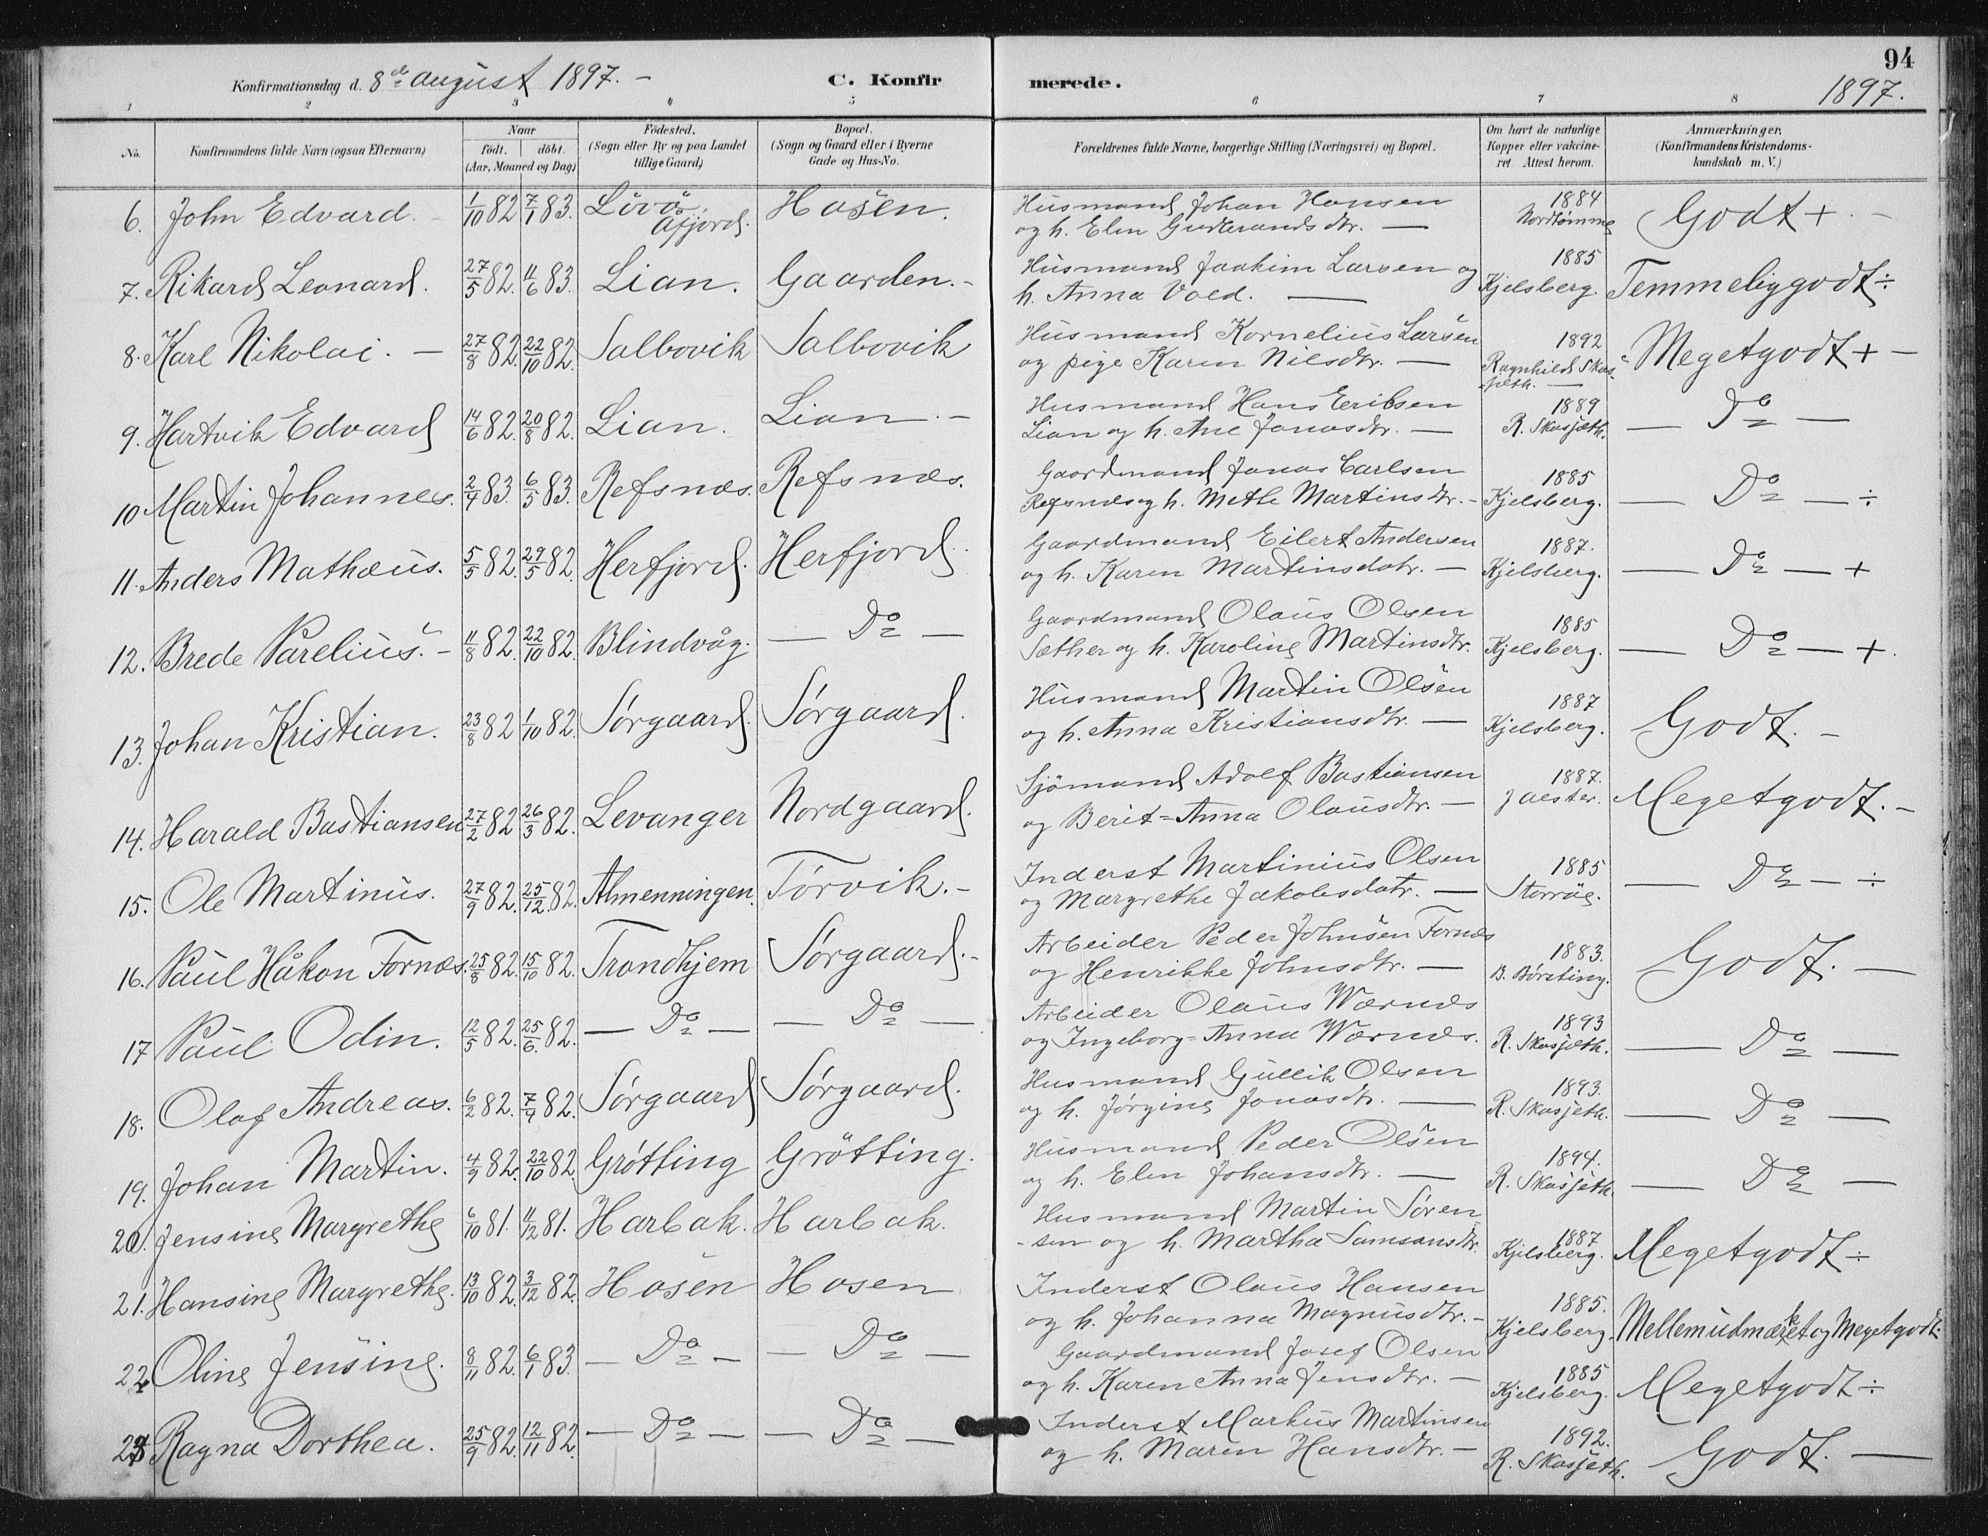 94
Konfirmationsdag d. 8de august 1897. –
C. Konfir
merede.
1897.
1 2 3 4 5 6 7 8
No. Konfirmandens fulde Navn (ogsaa Efternavn) Naar födt. döbt. (Aar, Maaned og Dag) Födested. (Sogn eller By og paa Landet tillige Gaard) Bopæl. (Sogn og Gaard eller i Byerne Gade og Hus-No. Forældrenes fulde Navne, borgerlige Stilling (Næringsvei) og Bopæl. Om havt de naturlige Kopper eller vakcineret. Attest herom. Anmærkninger. (Konfirmandens Kristendomskundskab m. V.)
6. John Edvard. – 1/10 82 7/1 83. Livö. Åfjord. Hosen. Husmand Johan Hansen
og h. Elen Gudbrandsdtr. — 1884 Nordtømme Godt + –
7. Rikard Leonard. 27/5 82. 11/6 83. Lian. Gaarden. – Husmand Joakim Larsen og
h. Anna Vold. — 1885 Kjelsberg. Temmeligodt ÷
8. Karl Nikolai. — 27/8 82. 22/10 82. Salbovik Salbovik Husmand Kornelius Larsen
og pige Karen Nilsdtr. — 1892 Ragnhild Skasjeth. — Megetgodt + —
9. Hartvik Edvard 14/6 82. 20/8 82. Lian. Lian – Husmand Hans Eriksen
Lian og h. Ane Jonasdtr. — 1889 R. Skasjeth. — Do —
10 Martin Johannes. 2/4 83. 6/5 83. Refsnæs. Refsnæs. Gaardmand Jonas Carlsen
Refsnæs og h. Methe Martinsdtr. – 1885 Kjelsberg. — Do — ÷
11. Anders Mathæus. 5/5 82. 29/5 82. Herfjord. Herfjord. Gaardmand Eilert Andersen
og h. Karen Martinsdatr. — 1887. Kjelsberg. — Do — +
12. Brede Parelius. – 11/8 82. 22/10 82. Blindvåg. — Do — Gaardmand Olaus Olsen
Sæther og h. Karoline Martinsdtr. 1885 Kjelsberg. — Do — +.
13. Johan Kristian. 23/8 82 1/10 82. Sørgaard. Sørgaard. Husmand Martin Olsen
og h. Anna Kristiansdtr. — 1887 Kjelsberg. Godt. –
14. Harald Bastiansen 27/2 82 26/3 82. Levanger Nordgaard. Sjömand Adolf Bastiansen
og Berit=Anna Olausdtr. — 1887. Megetgodt. –
15. Ole Martinus. 27/9 82. 25/12. 82. Almenningen. Törvik. – Inderst Martinius Olsen
og Margrethe Jakobsdatr. — 1885 Storrøe. — Do — ÷
16. Paul Håkon Fornæs. 25/8 82. 15/10 82. Trondhjem Sørgaard. – Arbeider Peder Johnsen Fornæs
og Henrikke Johnsdtr. — 1883. B. Børsting. Godt. —
17 Paul Odin. 12/5 82. 25/6. 82. — Do — — Do — Arbeider Olaus Wærnes
og Ingeborg=Anna Wærnes. 1893 R. Skasjeth. — Do —
18. Olaf Andreas. 6/2 82. 7/9 82. Sørgaard Sørgaard. Husmand Gullik Olsen
og h. Jørgine Jonasdtr. — 1893. R. Skasjeth. — Do —
19. Johan Martin. 4/9 82. 22/10 82. Grötting Grötting. Husmand Peder Olsen
og h. Elen Johansdtr. — 1894. R. Skasjeth. — Do —
20. Jensine Margrethe 6/10 81. 11/12 81. Harbak. Harbak. Husmand Martin Søren
-sen og h. Martha Samsonsdtr. 1887. Kjelsberg. Megetgodt ÷
21. Hansine Margrethe. 13/10 82. 3/12 82. Hosen Hosen Inderst Olaus Hansen
og h. Johanna Magnusdtr. – 1885. Kjelsberg. Mellemudmærket og Megetgodt.
22. Oline Jensine. 8/11 82. 6/1 83. — Do — — Do — Gaardmand Josef Olsen
og h. Karen Anna Jensdtr. — 1885 Kjelsberg. Megetgodt ÷
23 Ragna Dorthea. 25/9 82. 12/11 82. — Do — — Do — Inderst Markus Martinsen
og h. Maren Hansdtr. — 1892. R. Skasjeth. Godt. —